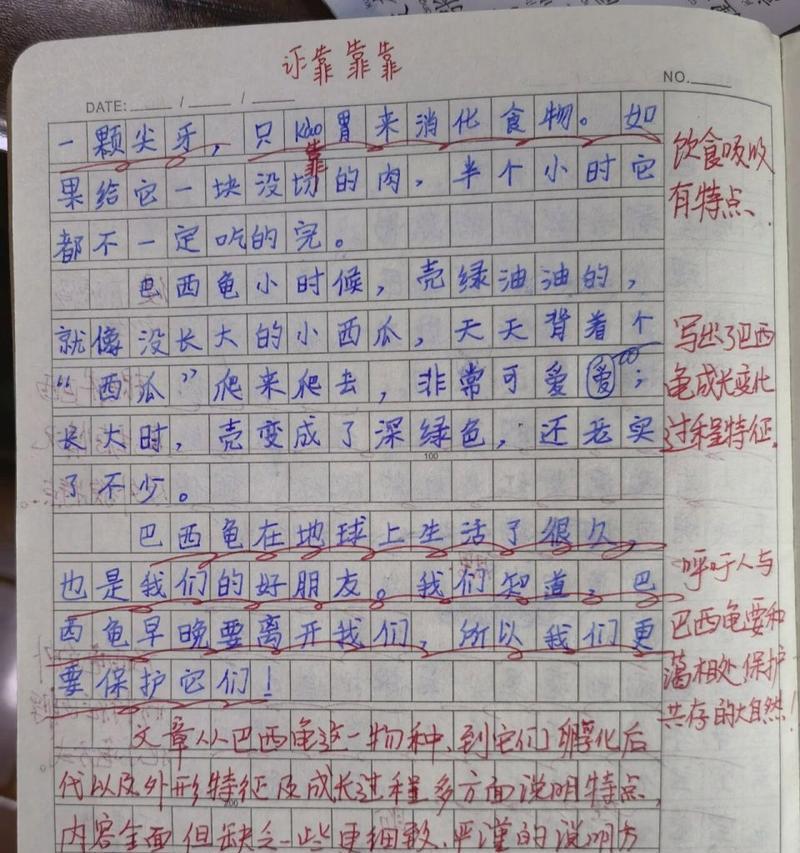 证靠靠靠
NO.
DATE: / /
一颗尖牙，只kao胃来消化食物。如
靠
果给它一块没切的肉，半个小时它
都不一定吃的完。
巴西龟小时候，壳绿油油的，
就像没长大的小西瓜，天天背着个
“西瓜”爬来爬去，非常可爱爱；
长大时，壳变成了深绿色，还老实
100
了不少。
巴西龟在地球上生活了很久，
也是我们的好朋友。我们知道，巴
西龟早晚要离开我们，所以我们更
要保护它们！
文章从巴西龟这一物种，到它们孵化后
代以及外形特征及成长过程多方面说明特点，
200
内容全面但缺乏一些更细致、严谨的说明方
饮食吸收
有特点．
写出了巴西
龟成长变化
过程特征．
呼吁人与
巴西龟要和
谐相处，保护
共存的大自然！